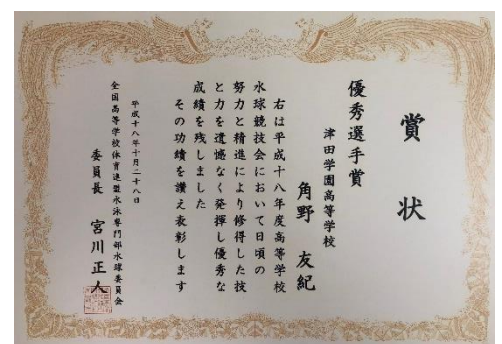 賞状
優秀選手賞
津田学園高等学校
角野友紀
右は平成十八年度高等学校
水球競技会において日頃の
努力と精進により修得した技
と力を遺憾なく発揮し優秀な
成績を残しました
その功績を讃え表彰します
平成十八年十月二十八日
全国高等学校体育連盟水泳専門部水球委員会
委員長 宮川正人